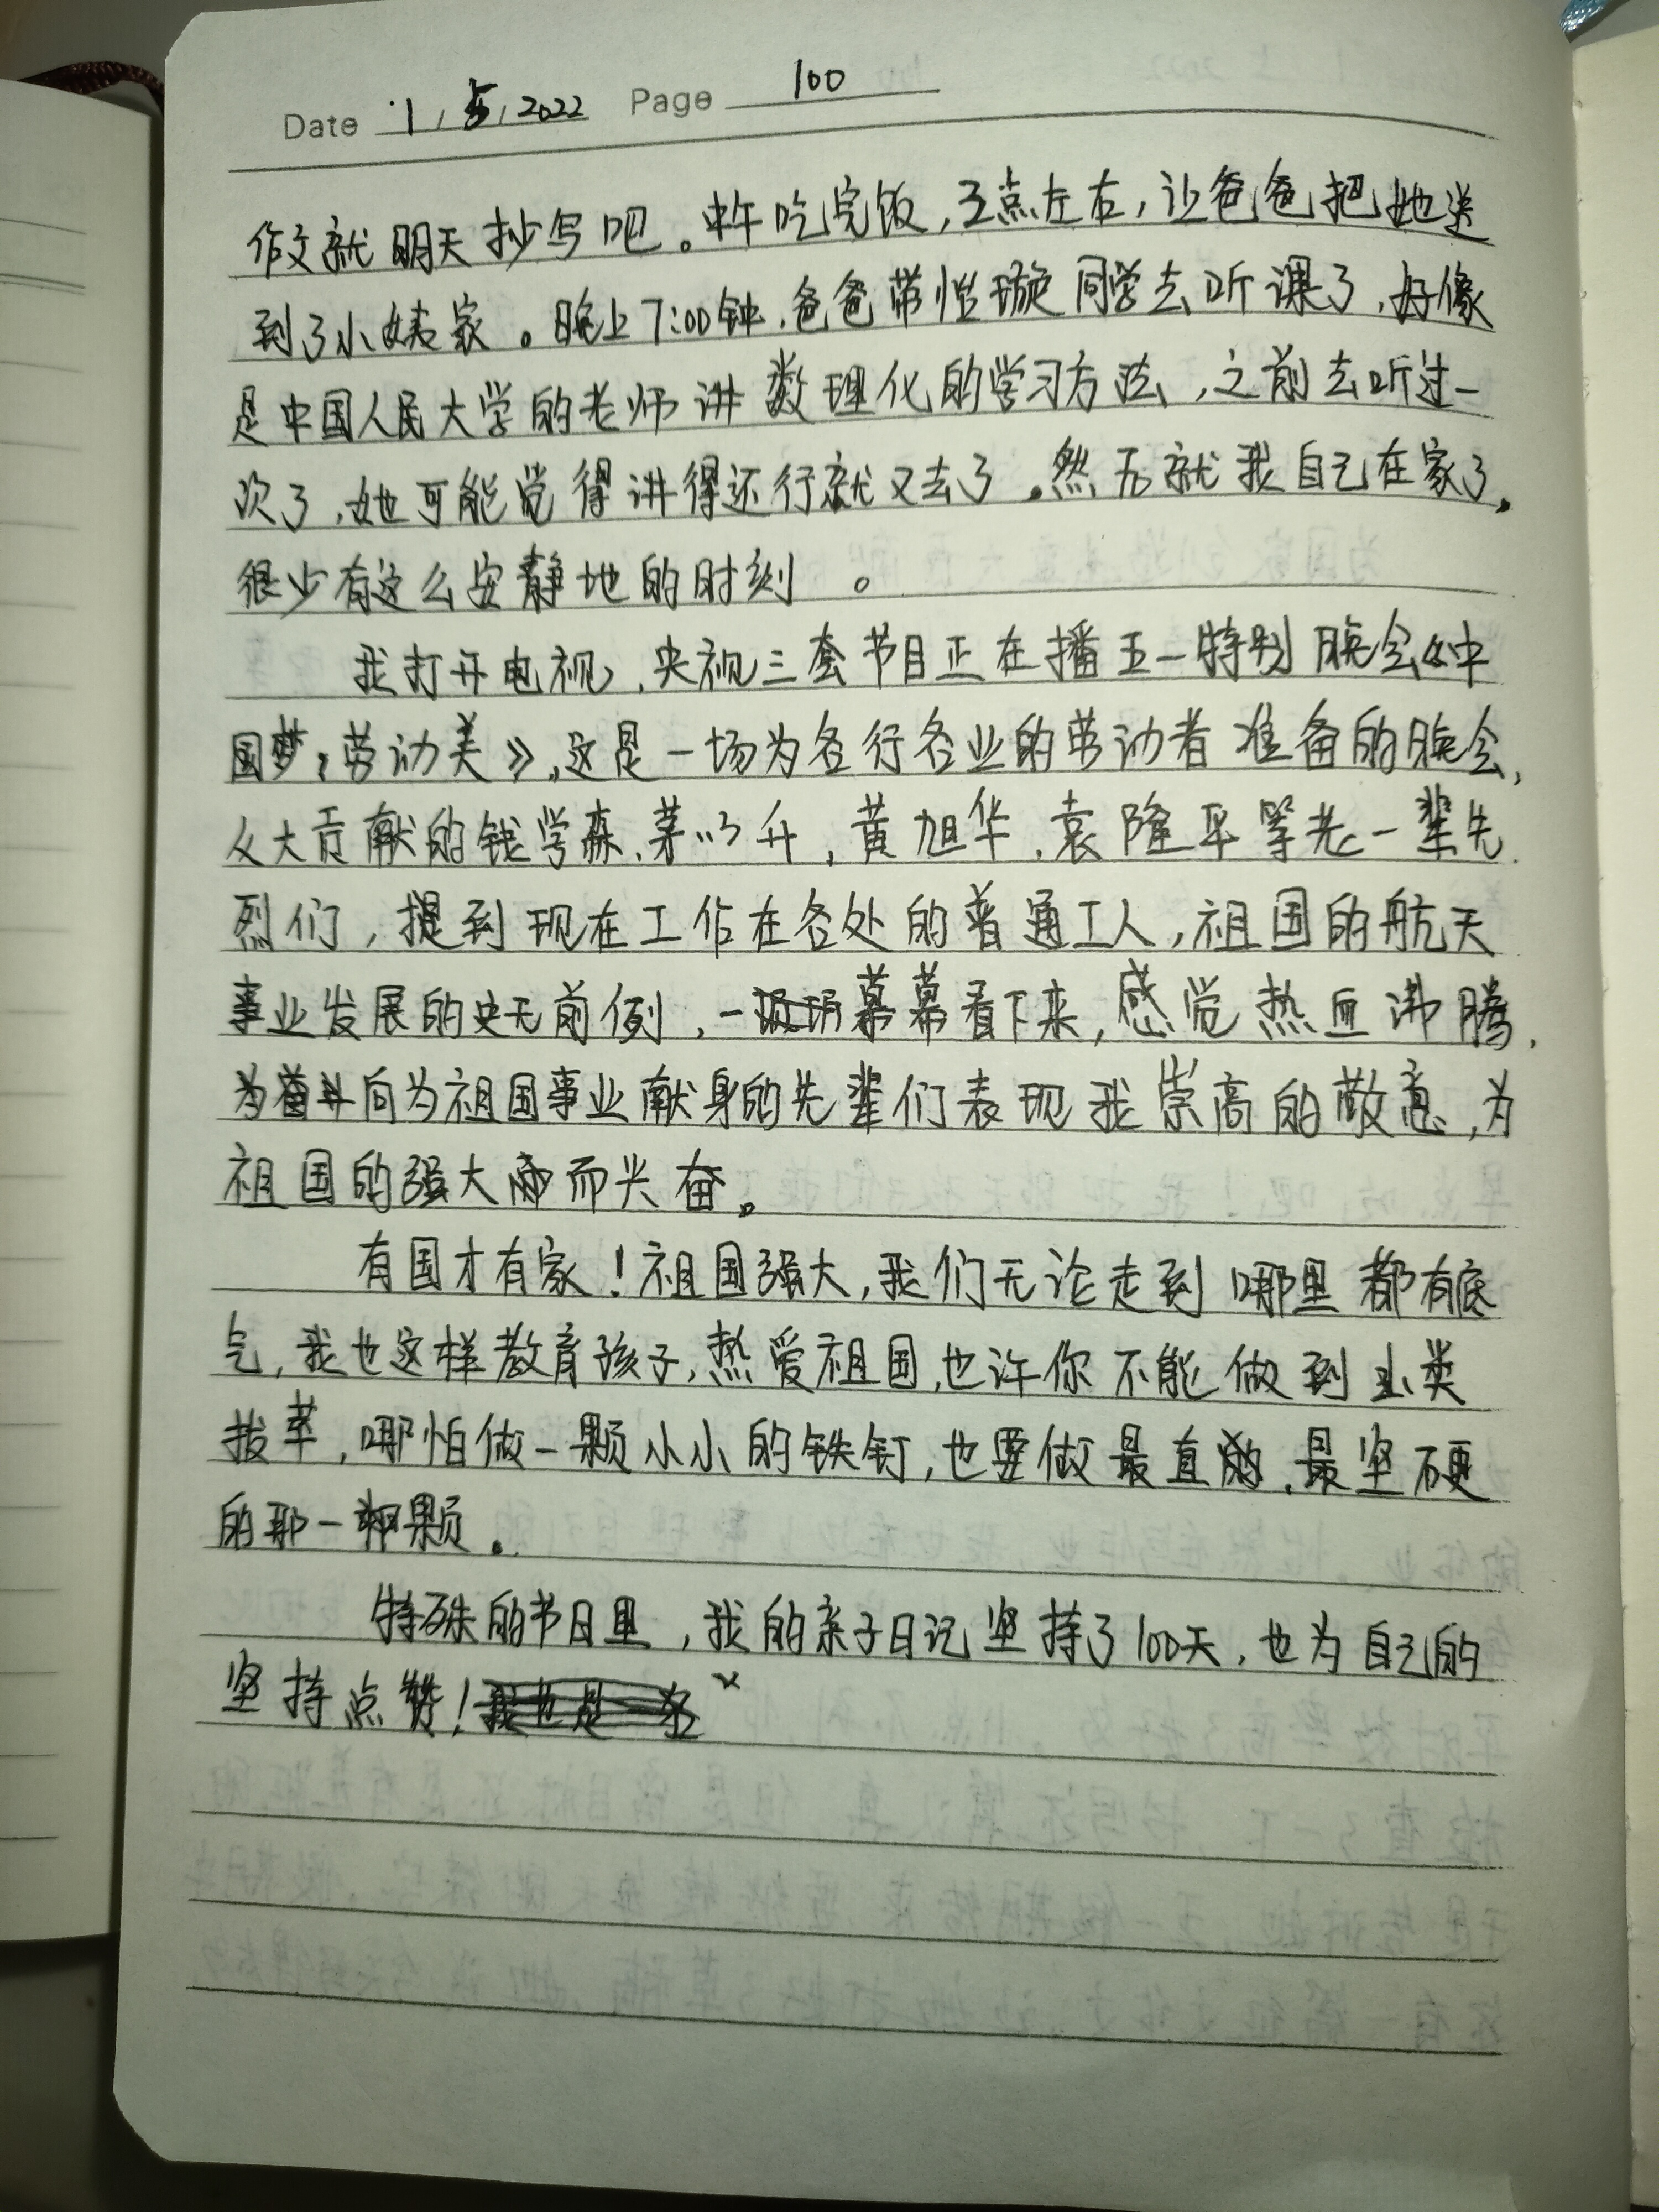 Date 1 / 5 / 2022 Page 100
作文就明天抄写吧。中午吃完饭，三点左右，让爸爸把她送
到了小姨家。晚上7:00钟，爸爸带恺璇同学去听课了，好像
是中国人民大学的老师讲数理化的学习方法，之前去听过一
次了，她可能觉得讲得还行就又去了。然后就我自己在家了。
很少有这么安静地的时刻。
我打开电视，央视三套节目正在播五一特别晚会《中
国梦，劳动美》，这是一场为各行各业的劳动者准备的晚会，
从大贡献的钱学森、茅以升，黄旭华，袁隆平等老一辈先
烈们，提到现在工作在各处的普通工人，祖国的航天
事业发展的史无前例，一幕幕看下来，感觉热血沸腾，
向为祖国事业献身的先辈们表现我崇高的敬意，为
祖国的强大而兴奋。
有国才有家！祖国强大，我们无论走到哪里都有底
气，我也这样教育孩子，热爱祖国，也许你不能做到出类
拔萃，哪怕做一颗小小的铁钉，也要做最直的，最坚硬
的那一颗。
特殊的节日里，我的亲子日记坚持了100天，也为自己的
坚持点赞！